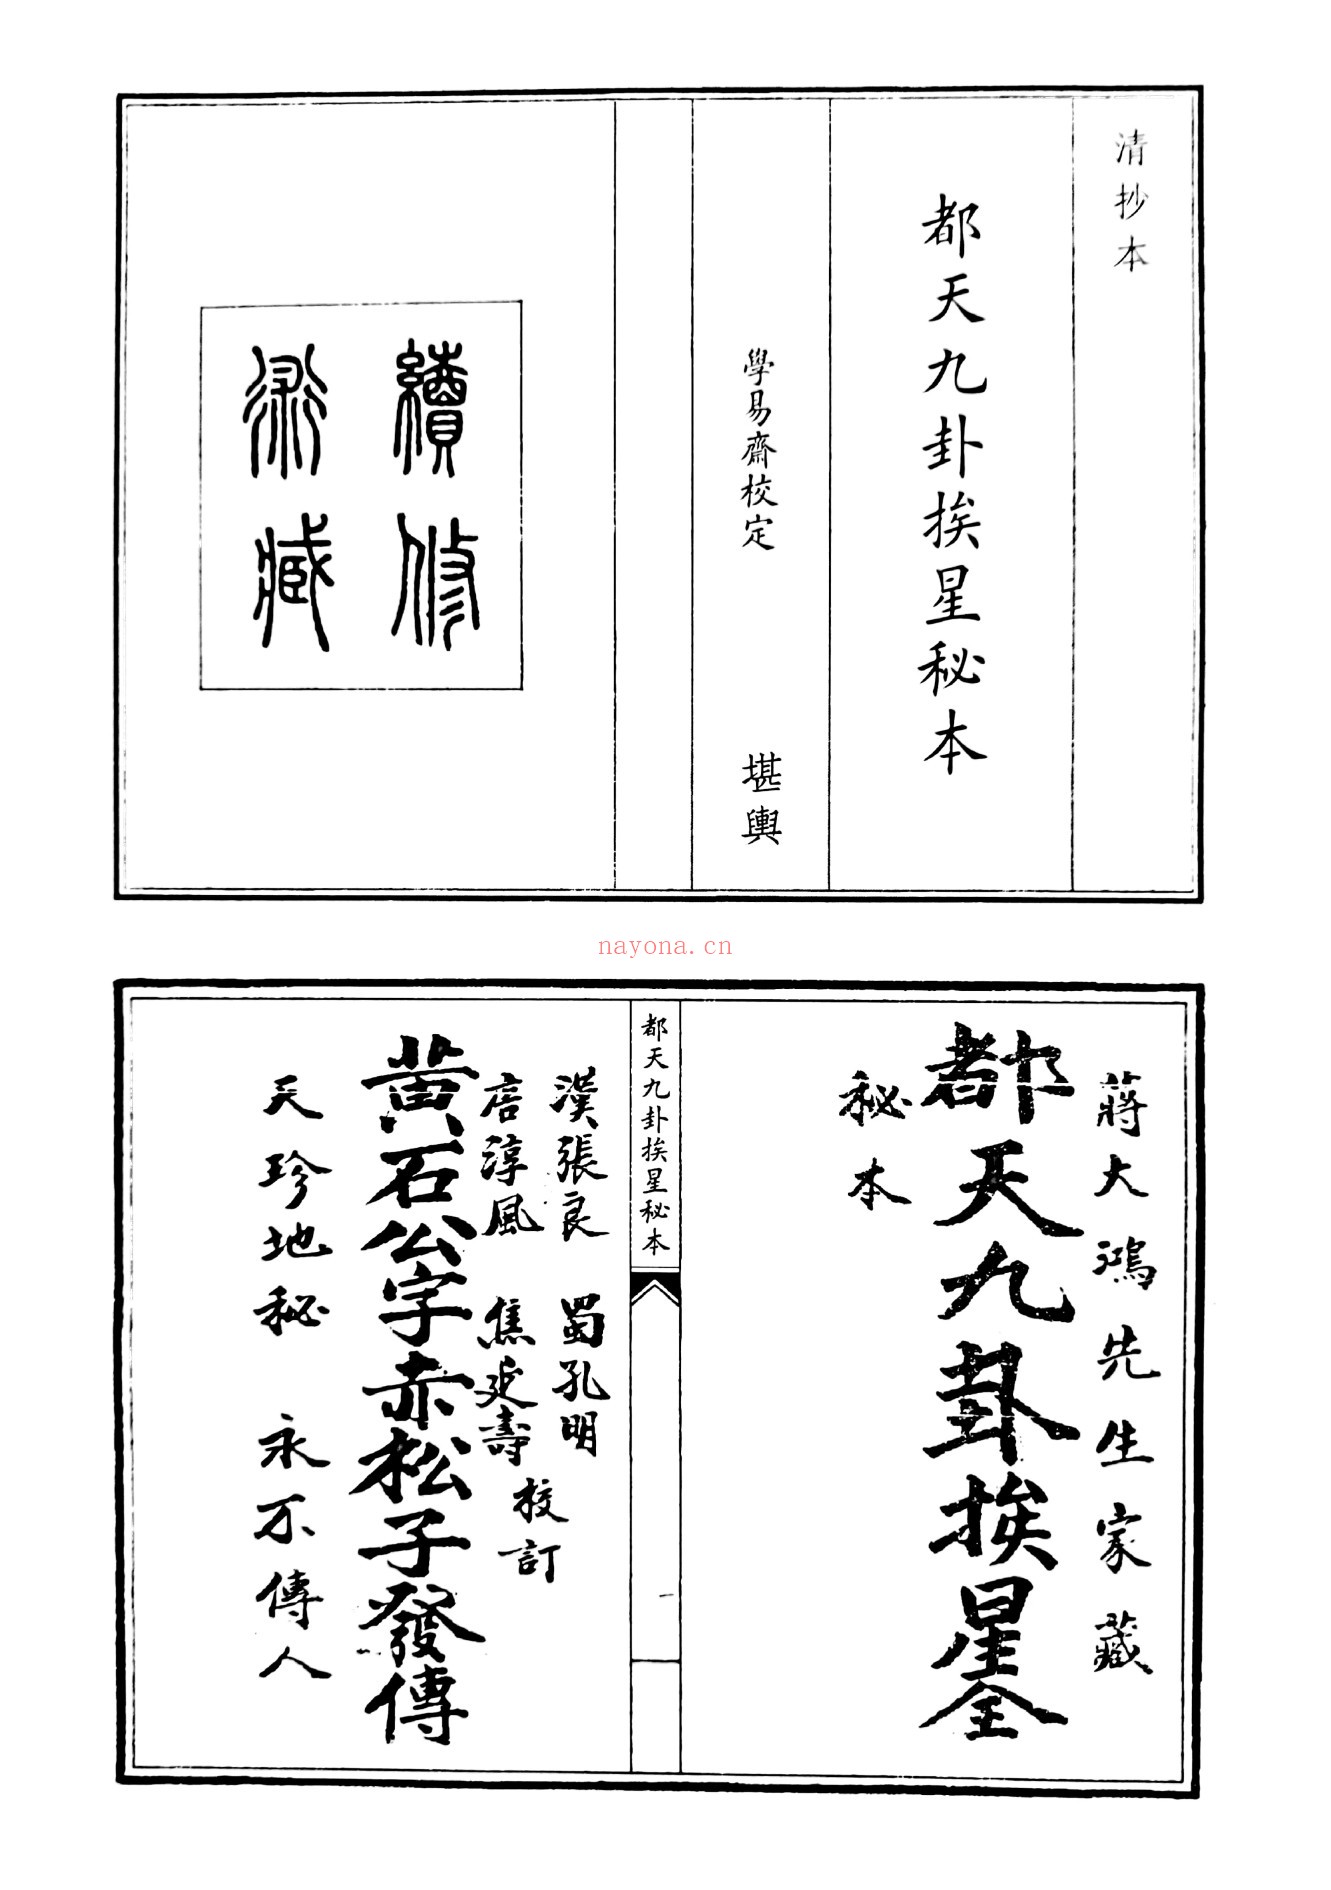 清抄本
都天九卦挨星秘本
學易齋校定
堪輿
續修
術藏
nayona.cn
蔣大鴻先生家藏
都天九卦挨星全
秘本
都天九卦挨星秘本
一
漢張良 蜀孔明
唐淳風 焦延壽
校訂
黃石公字赤松子發傳
天珍地秘 永不傳人